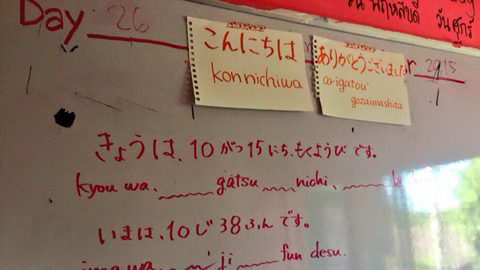 วัน พฤหัสบดี วันศุกร์
Day 26
2015
こんにちは
konnichiwa
ありがとうございました
arigatou
gozaimashita
きょうは、10がつ15にち、もくようびです。
kyou wa, gatsu nichi,
いまは、10じ38ふんです。
ji fun desu.